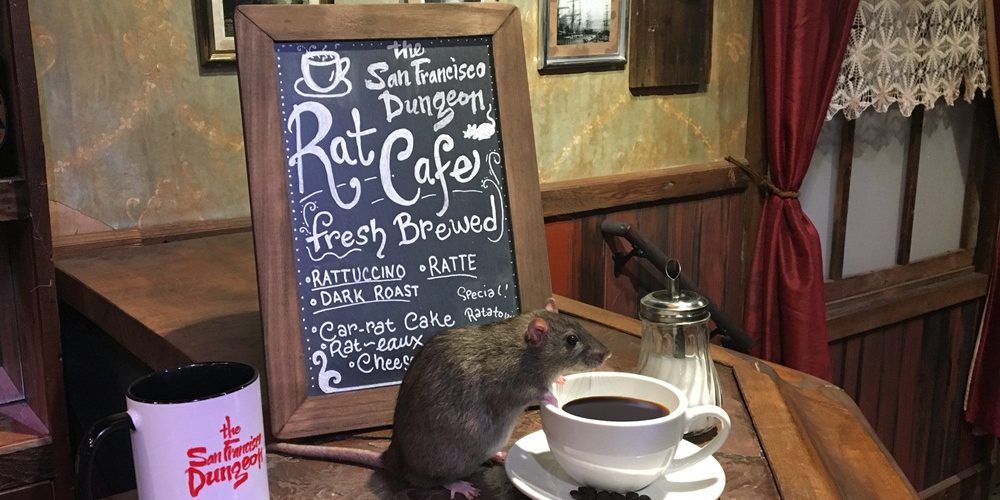 the
San Francisco
Dungeon
Rat
Cafe
fresh Brewed
•RATTUCCINO •RATTE
•DARK ROAST
Special!
•Car-rat Cake
•Rat-eaux
•Chees
the
San Francisco
Dungeon